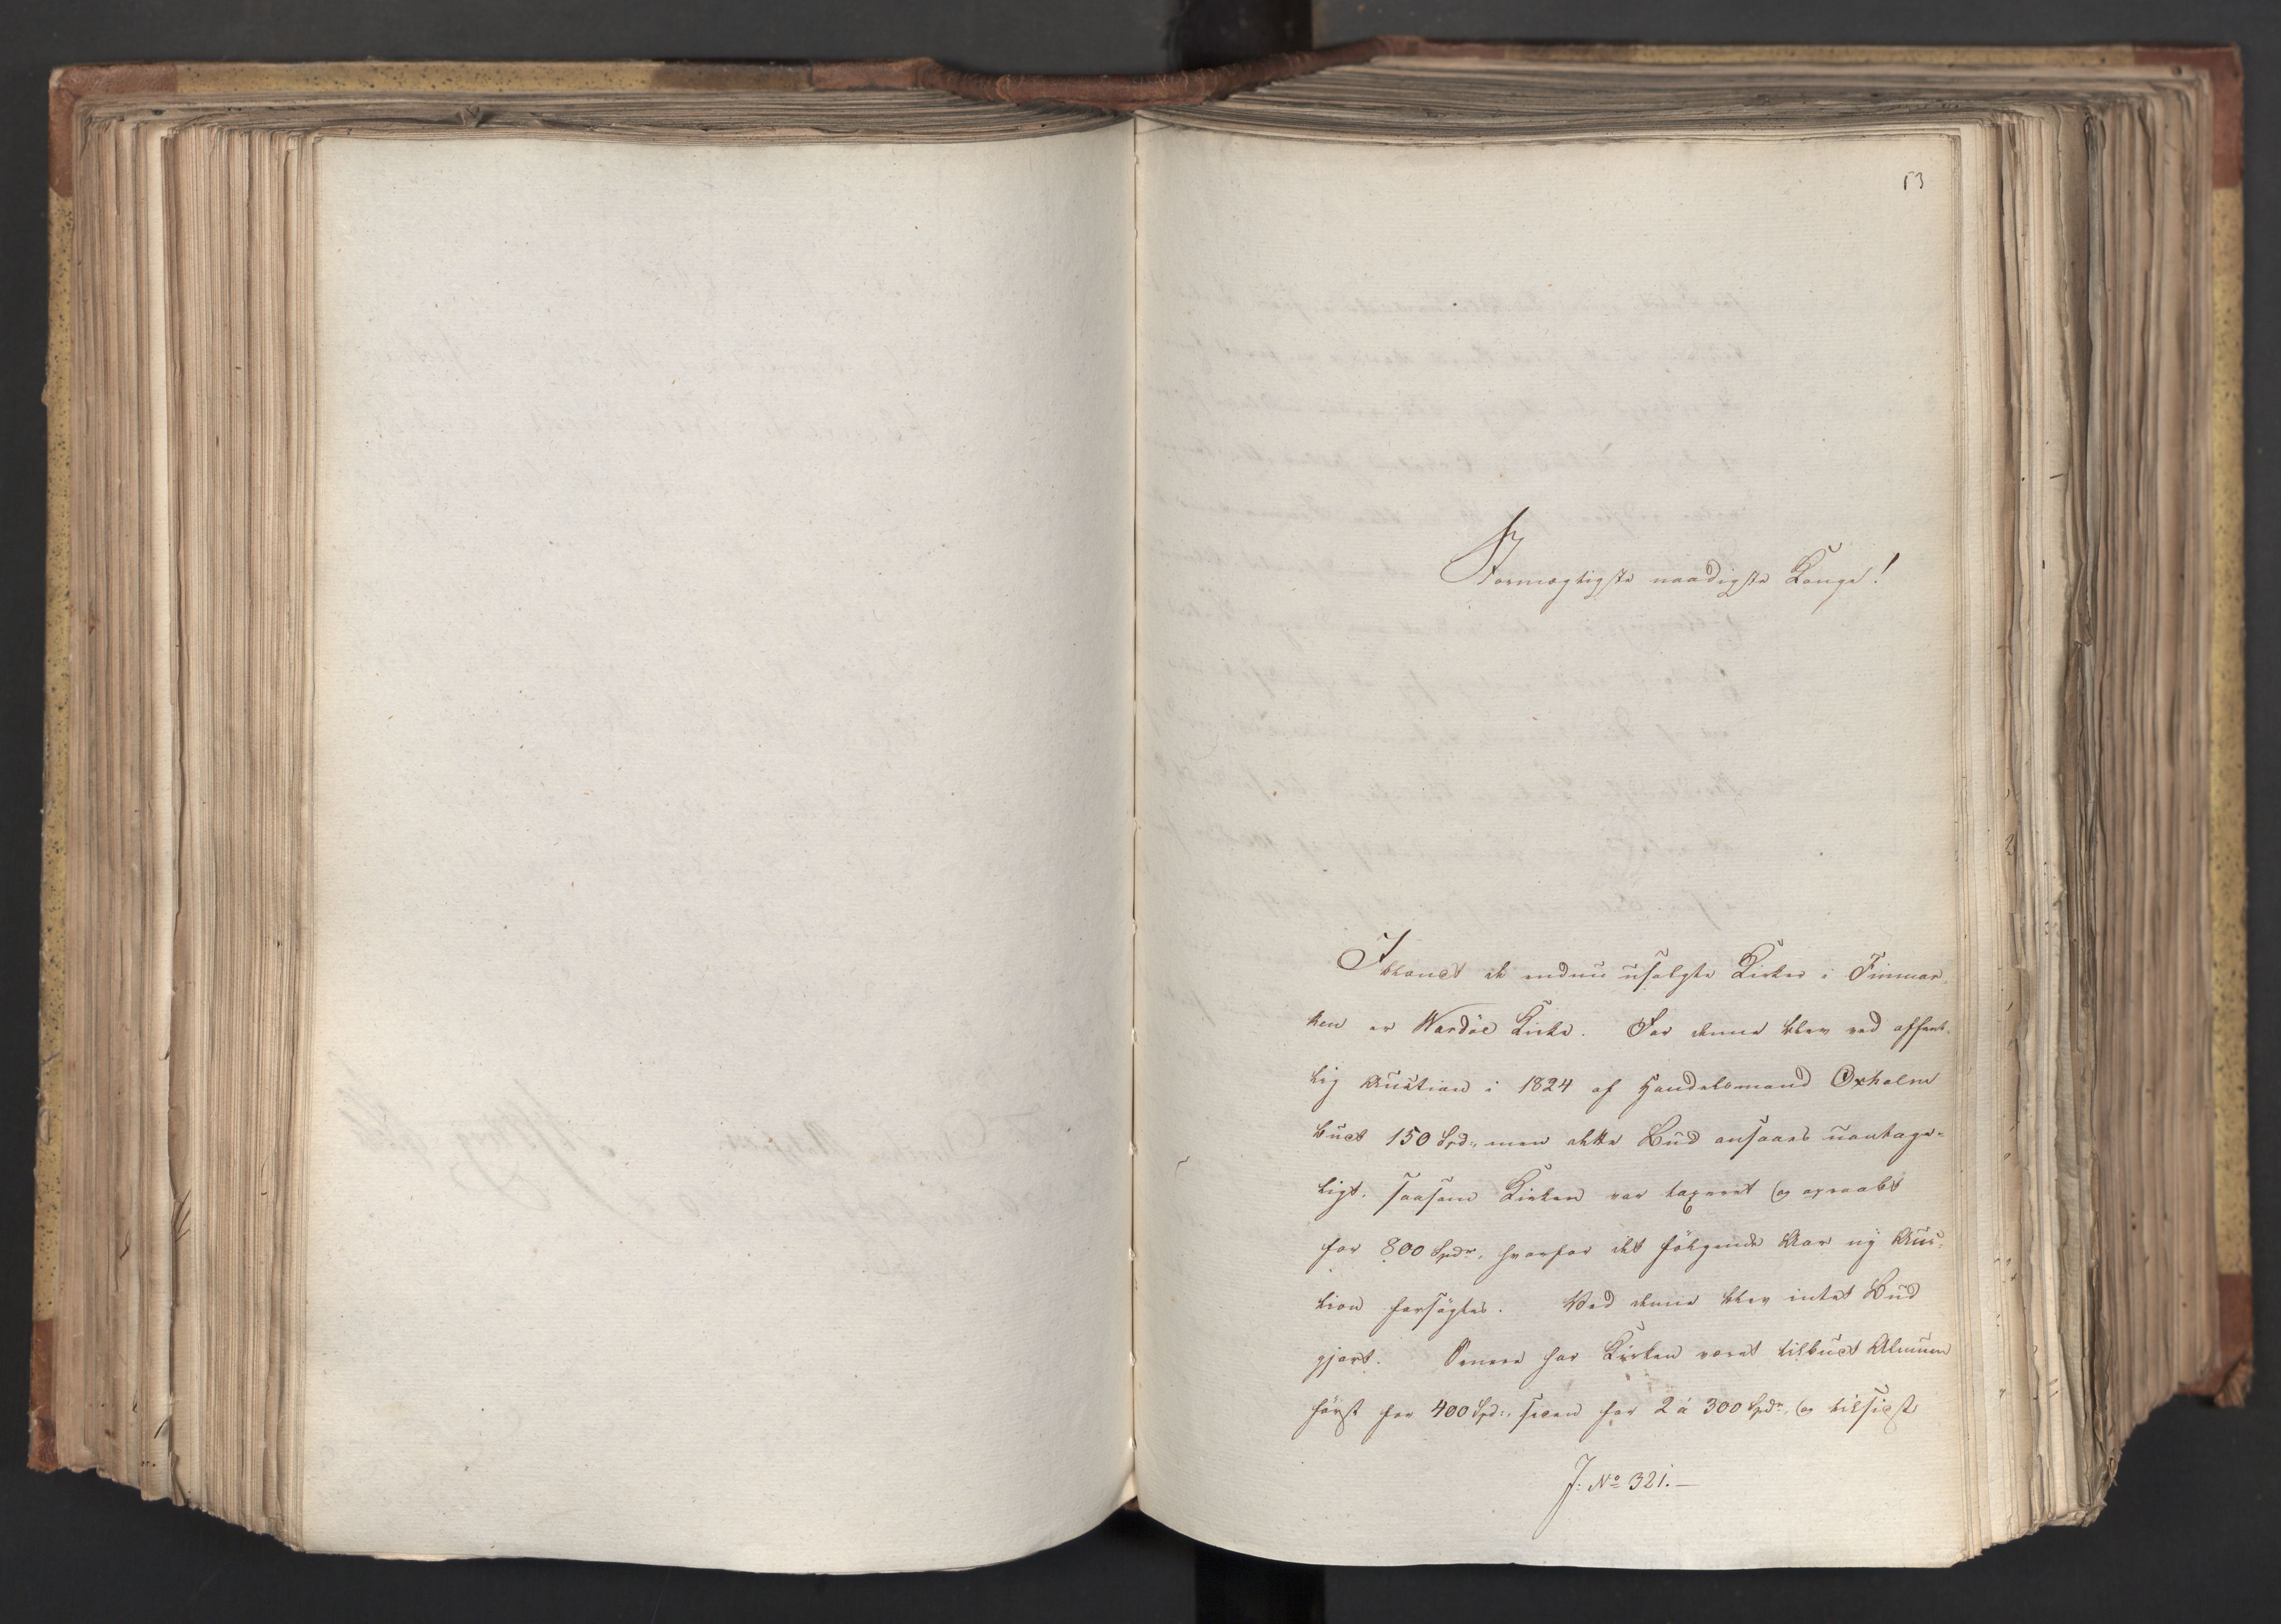 53
Stormægtigste naadigste Konge!
Iblandt de endnu usolgte Kirker i Finmar-
ken er Wardöe Kirke. For denne blev ved offent-
lig Auction i 1824 af Handelsmand Oxholm
budt 150 Spd:, men dette Bud ansaaes uantage-
ligt, saasom Kirken var taxeret og opraabt
for 800 Spdr, hvorfor det fölgende Aar ny Auc-
tion forsögtes. Ved denne blev intet Bud
gjort. Senere har Kirken været tilbudt Almuen
först for 400 Spd:, siden for 2 á 300 Spdr, og tilsidst
J: No 321.—